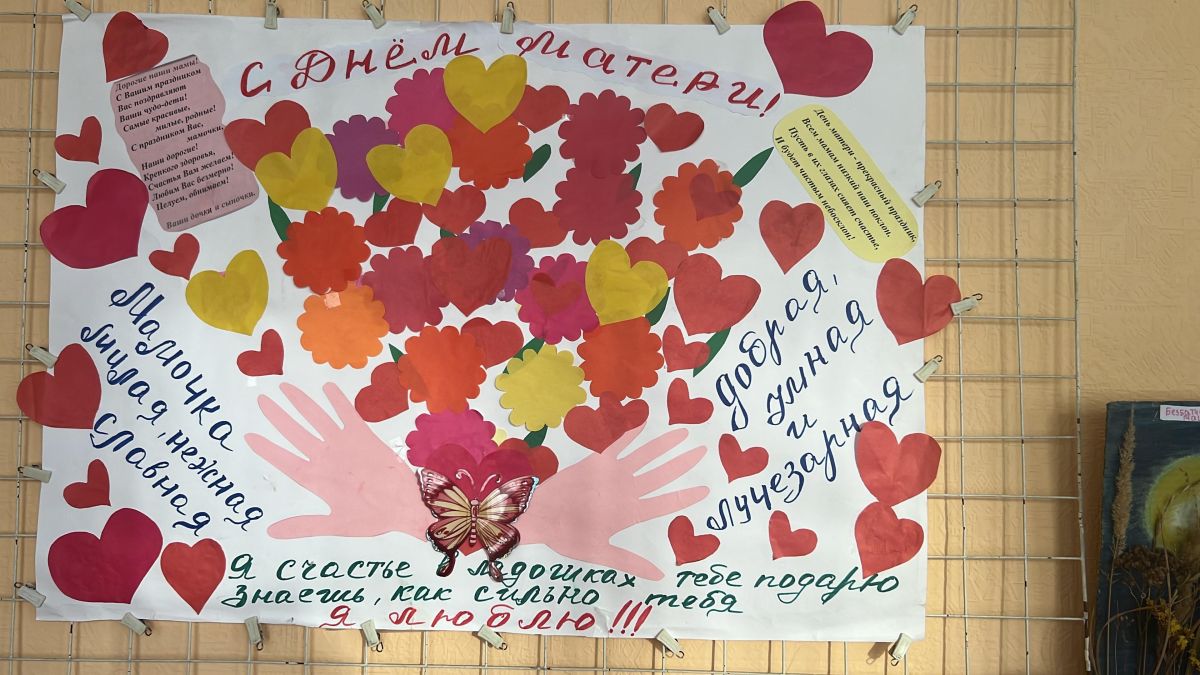 С Днём матери!
Дорогие наши мамы!
С Вашим праздником
Вас поздравляют
Ваши чудо-дети!
Самые красивые,
милые, родные!
С праздником Вас,
мамочки,
Наши дорогие!
Крепкого здоровья,
Счастья Вам желаем!
Любим Вас безмерно!
Целуем, обнимаем!
Ваши дочки и сыночки.
День матери - прекрасный праздник,
Всем мамам низкий наш поклон.
Пусть в их глазах сияет счастье,
И будет чистым небосклон!
Мамочка
милая, нежная
славная
добрая,
умная
и
лучезарная
Я счастье в ладошках тебе подарю
Знаешь, как сильно тебя
я люблю!!!